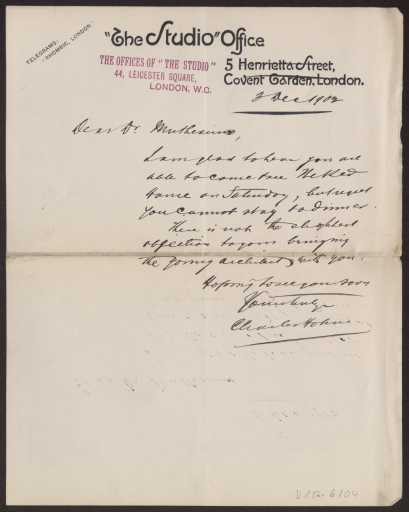 TELEGRAMS:
"RHOMBIC, LONDON."
"The Studio" Office
THE OFFICES OF "THE STUDIO"
44, LEICESTER SQUARE,
LONDON, W.C.
5 Henrietta Street,
Covent Garden, London.
2 Dec 1902
Dear Dr. Muthesius,
I am glad to hear you are
able to come to see The Red
House on Saturday, but regret
you cannot stay to dinner.
There is not the slightest
objection to your bringing
the young architect with you.
Hoping to see you soon
Yours truly
Charles Holme